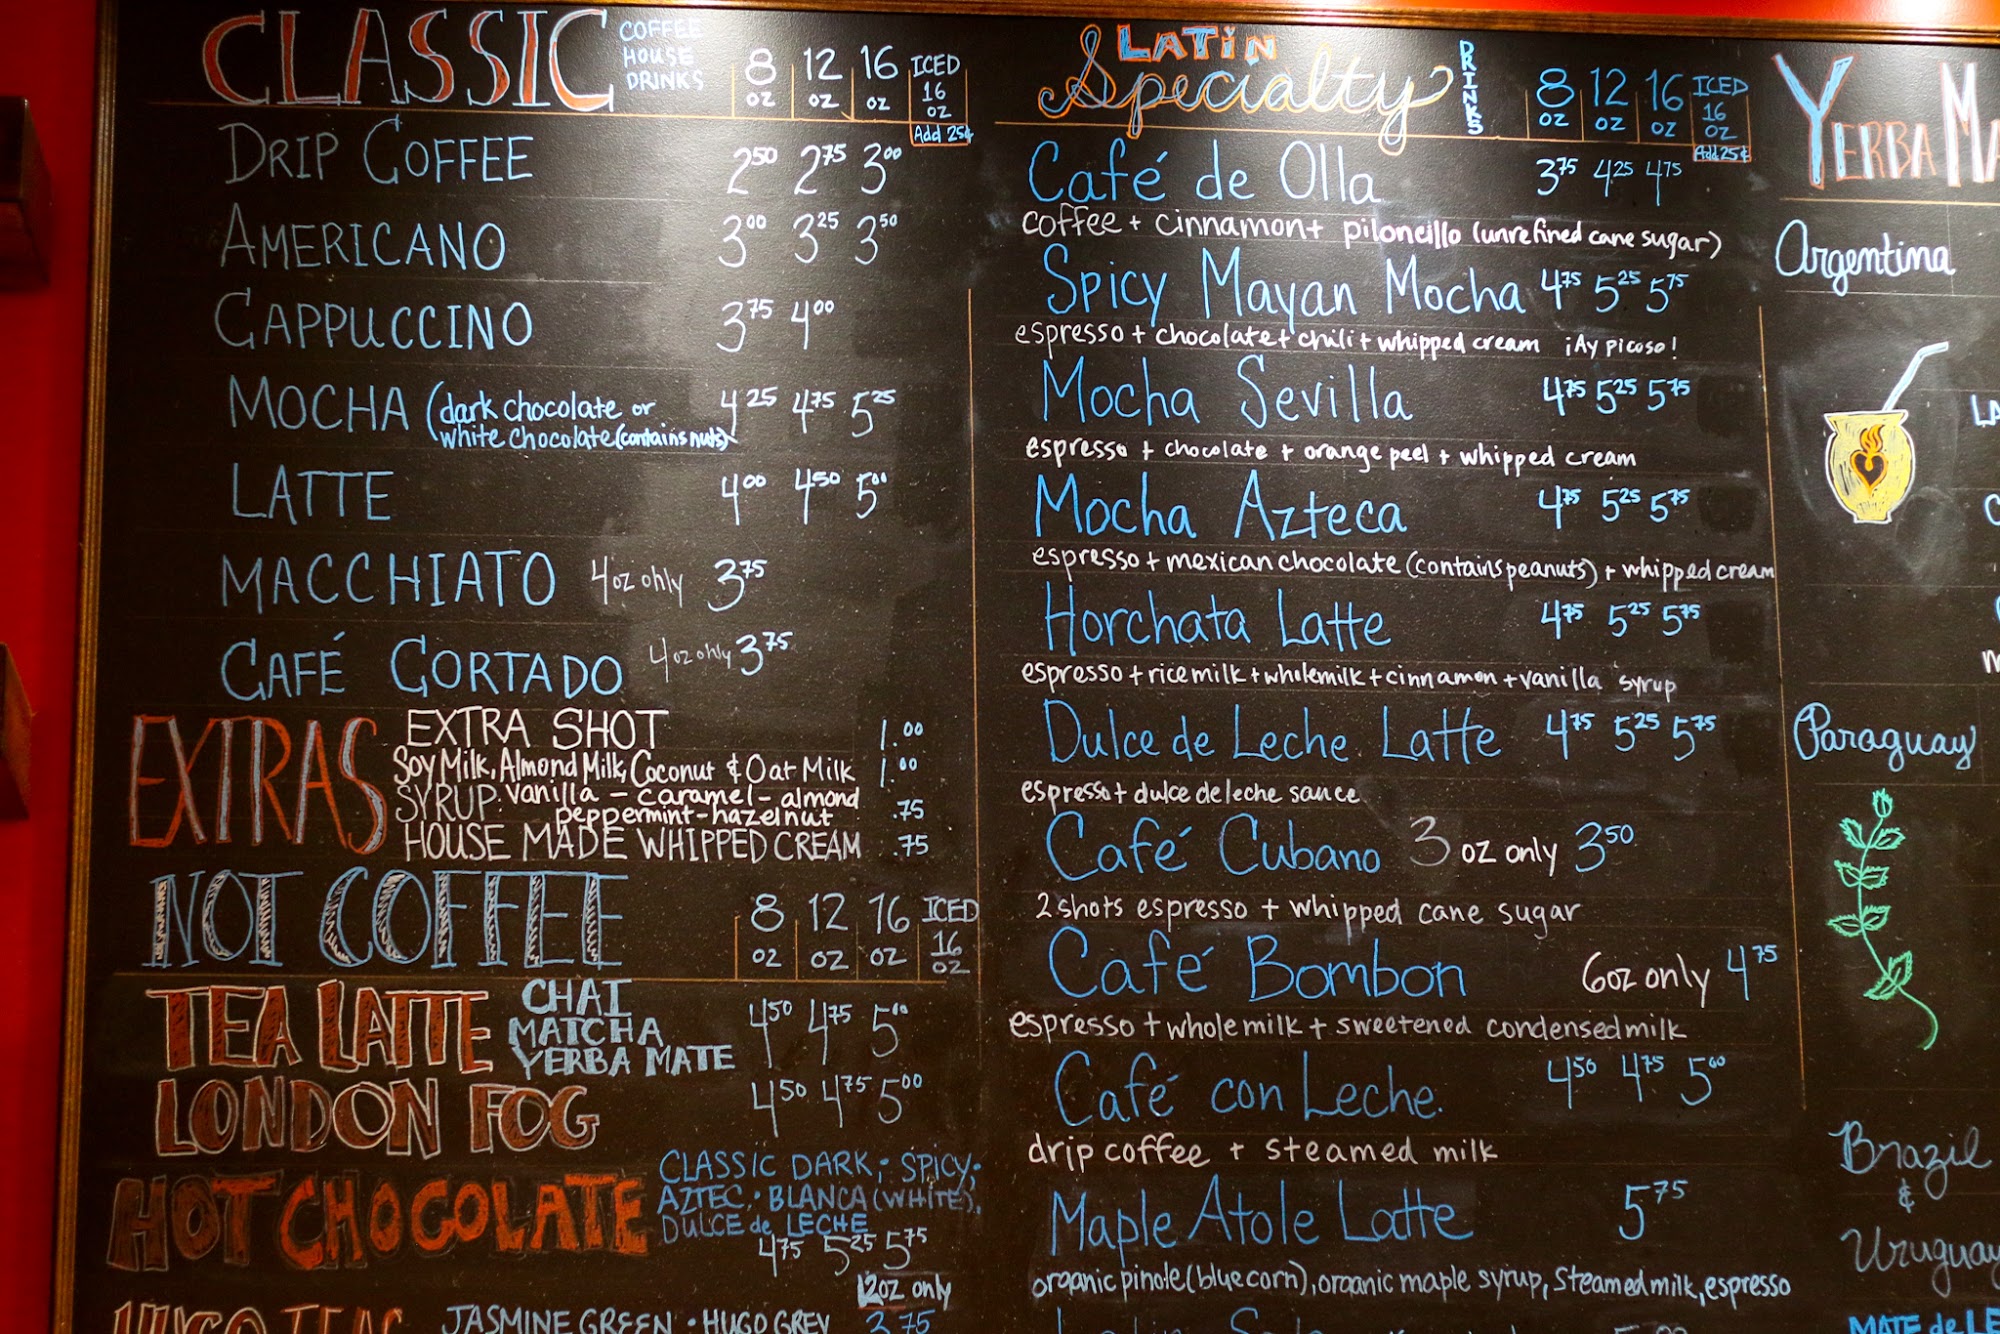 CLASSIC COFFEE HOUSE DRINKS 8 oz 12 oz 16 oz ICED 16 oz Add 25¢
DRIP COFFEE 2.50 2.75 3.00
AMERICANO 3.00 3.25 3.50
CAPPUCCINO 3.75 4.00
MOCHA (dark chocolate or white chocolate (contains nuts) 4.25 4.75 5.25
LATTE 4.00 4.50 5.00
MACCHIATO 4oz only 3.75
CAFÉ CORTADO 4oz only 3.75
EXTRAS
EXTRA SHOT 1.00
Soy Milk, Almond Milk, Coconut & Oat Milk 1.00
SYRUP: vanilla - caramel - almond
peppermint - hazelnut .75
HOUSE MADE WHIPPED CREAM .75
NOT COFFEE 8 oz 12 oz 16 oz ICED 16 oz
TEA LATTE CHAI MATCHA YERBA MATE 4.50 4.75 5.00
LONDON FOG 4.50 4.75 5.00
HOT CHOCOLATE CLASSIC DARK; SPICY;
AZTEC; BLANCA (WHITE),
DULCE de LECHE
4.75 5.25 5.75
12oz only
JASMINE GREEN • HUGO GREY 3.75
LATIN Specialty DRINKS 8 oz 12 oz 16 oz ICED 16 oz Add 25¢
Café de Olla 3.75 4.25 4.75
coffee + cinnamon + piloncillo (unrefined cane sugar)
Spicy Mayan Mocha 4.75 5.25 5.75
espresso + chocolate + chili + whipped cream ¡Ay picoso!
Mocha Sevilla 4.75 5.25 5.75
espresso + chocolate + orange peel + whipped cream
Mocha Azteca 4.75 5.25 5.75
espresso + mexican chocolate (contains peanuts) + whipped cream
Horchata Latte 4.75 5.25 5.75
espresso + rice milk + whole milk + cinnamon + vanilla syrup
Dulce de Leche Latte 4.75 5.25 5.75
espresso + dulce de leche sauce
Café Cubano 3 oz only 3.50
2 shots espresso + whipped cane sugar
Café Bombon 6oz only 4.75
espresso + whole milk + sweetened condensed milk
Café con Leche 4.50 4.75 5.00
drip coffee + steamed milk
Maple Atole Latte 5.75
organic pinole (blue corn), organic maple syrup, steamed milk, espresso
YERBA MA
Argentina
LA
Paraguay
Brazil
&
Uruguay
MATE de LE